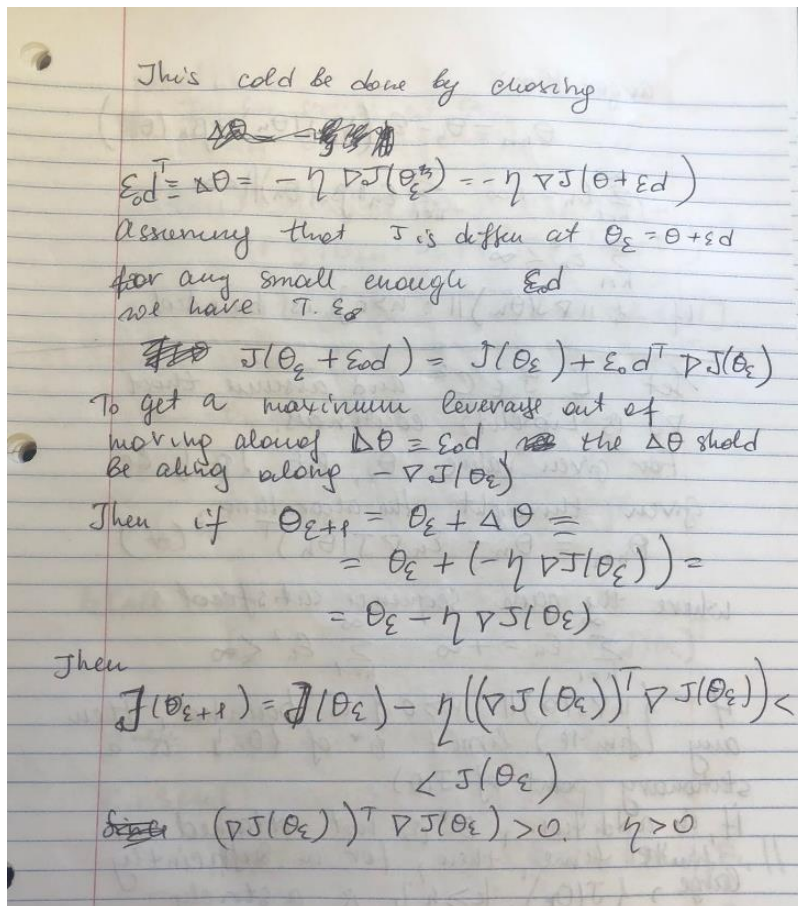 This cold be done by chosing
ε₀dᵀ = Δθ = - η ∇J(θ_ε) = - η ∇J(θ+εd)
Assuming that J is differ at θ_ε = θ+εd
for any small enough ε₀d
we have T. ε₀
J(θ_ε + ε₀d) = J(θ_ε) + ε₀ dᵀ ∇J(θ_ε)
To get a maximum leverage out of
moving along Δθ = ε₀d, the Δθ shold
be along - ∇J(θ_ε)
Then if θ_ε+1 = θ_ε + Δθ =
= θ_ε + (-η ∇J(θ_ε)) =
= θ_ε - η ∇J(θ_ε)
Then
J(θ_ε+1) = J(θ_ε) - η((∇J(θ_ε))ᵀ ∇J(θ_ε)) <
< J(θ_ε)
(∇J(θ_ε))ᵀ ∇J(θ_ε) > 0. η > 0